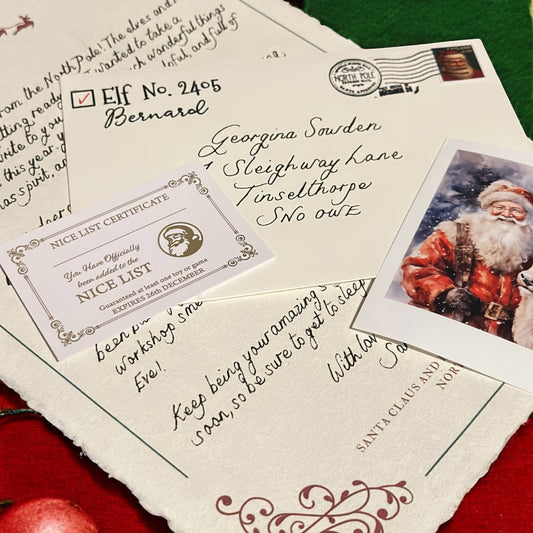 from the North Pole! The elves and I
wanted to take a
such wonderful things
getting ready
and full of
write to you
this year.
has spirit,
Elf No. 2405
Bernard
NORTH POLE
Georgina Sowden
1 Sleighway Lane
Tinselthorpe
SN0 0WE
NICE LIST CERTIFICATE
You Have Officially
been added to the
NICE LIST
Guaranteed at least one toy or game
EXPIRES 26th DECEMBER
been
Workshop
Eve!
Keep being your amazing
soon, so be sure to get to sleep
With
SANTA CLAUS AND